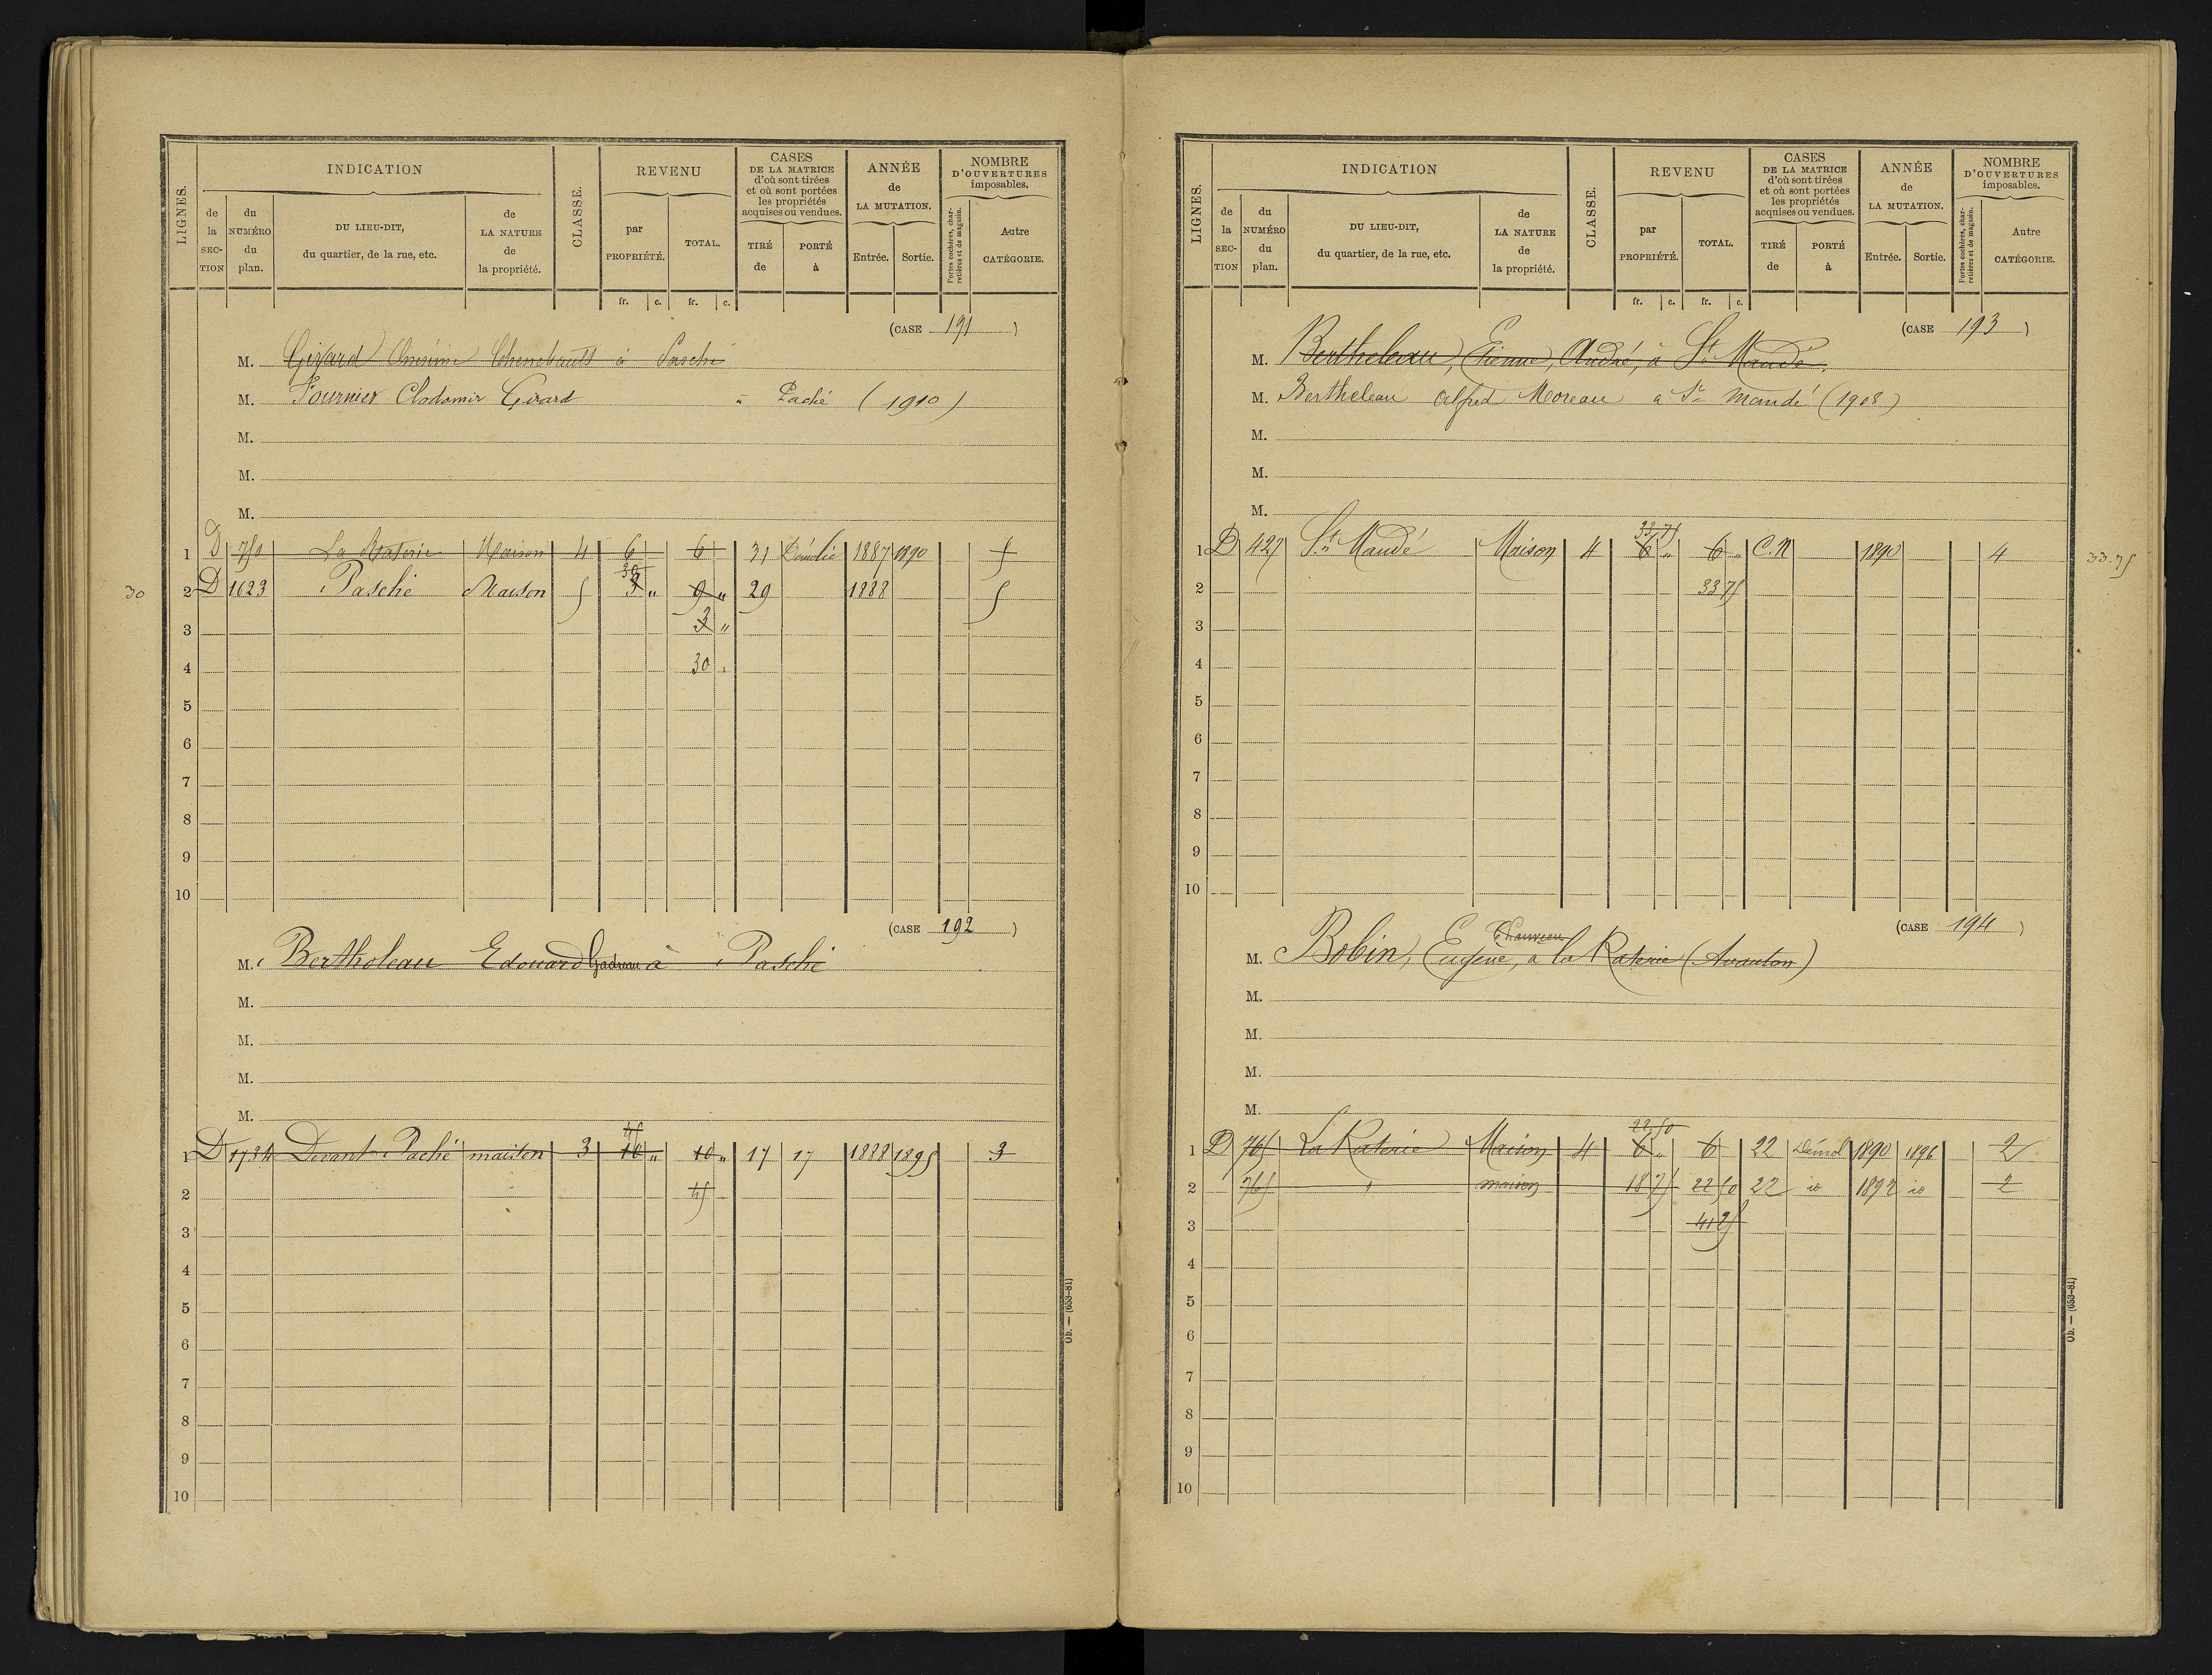 LIGNES.
INDICATION
CLASSE.
REVENU
CASES
DE LA MATRICE
d'où sont tirées
et où sont portées
les propriétés
acquises ou vendues.
ANNÉE
de
LA MUTATION.
NOMBRE
D'OUVERTURES
imposables.
de
la
SEC-
TION
du
NUMÉRO
du
plan.
DU LIEU-DIT,
du quartier, de la rue, etc.
de
LA NATURE
de
la propriété.
par
PROPRIÉTÉ.
TOTAL.
TIRÉ
de
PORTÉ
à
Entrée.
Sortie.
Portes cochères, char-
retières et de magasin.
Autre
CATÉGORIE.
fr. c. fr. c.
(CASE 191)
M. Girard Onésime Chenebault à Pasché
M. Fournier Clodomir Girard à Paché (1910)
M.
M.
M.
1 D 750 La Raterie Maison 4 6 6 31 Démolie 1887 1890 5
30
30 2 D 1623 Pasché Maison 5 3 " 9 " 29 1888 5
3 3 "
4 30 "
5
6
7
8
9
10
(CASE 192)
M. Bertholeau Edouard Gadreau à Pasché
M.
M.
M.
M.
45
1 D 1734 Devant Paché maison 3 10 " 10 " 17 17 1888 1895 3
2 45
3
4
5
6
7
8
9
10
Ob. — (653-81)
LIGNES.
INDICATION
CLASSE.
REVENU
CASES
DE LA MATRICE
d'où sont tirées
et où sont portées
les propriétés
acquises ou vendues.
ANNÉE
de
LA MUTATION.
NOMBRE
D'OUVERTURES
imposables.
de
la
SEC-
TION
du
NUMÉRO
du
plan.
DU LIEU-DIT,
du quartier, de la rue, etc.
de
LA NATURE
de
la propriété.
par
PROPRIÉTÉ.
TOTAL.
TIRÉ
de
PORTÉ
à
Entrée.
Sortie.
Portes cochères, char-
retières et de magasin.
Autre
CATÉGORIE.
fr. c. fr. c.
(CASE 193)
M. Bertheleau, Etienne, André, à St Maudé.
M. Bertheleau Alfred Moreau a St Mandé (1908)
M.
M.
M.
33,75
1 D 427 St Maudé Maison 4 6 " 6 " C.N 1890 4 33.75
2 33 75
3
4
5
6
7
8
9
10
(CASE 194)
Chauveau
M. Bobin, Eugène, à la Raterie (Avanton)
M.
M.
M.
M.
22,50
1 D 765 La Raterie Maison 4 6 " 6 22 Démol 1890 1896 2
2 765 " maison 18 75 22 50 22 io 1892 io 2
3 41 25
4
5
6
7
8
9
10
Ob. — (653-81)